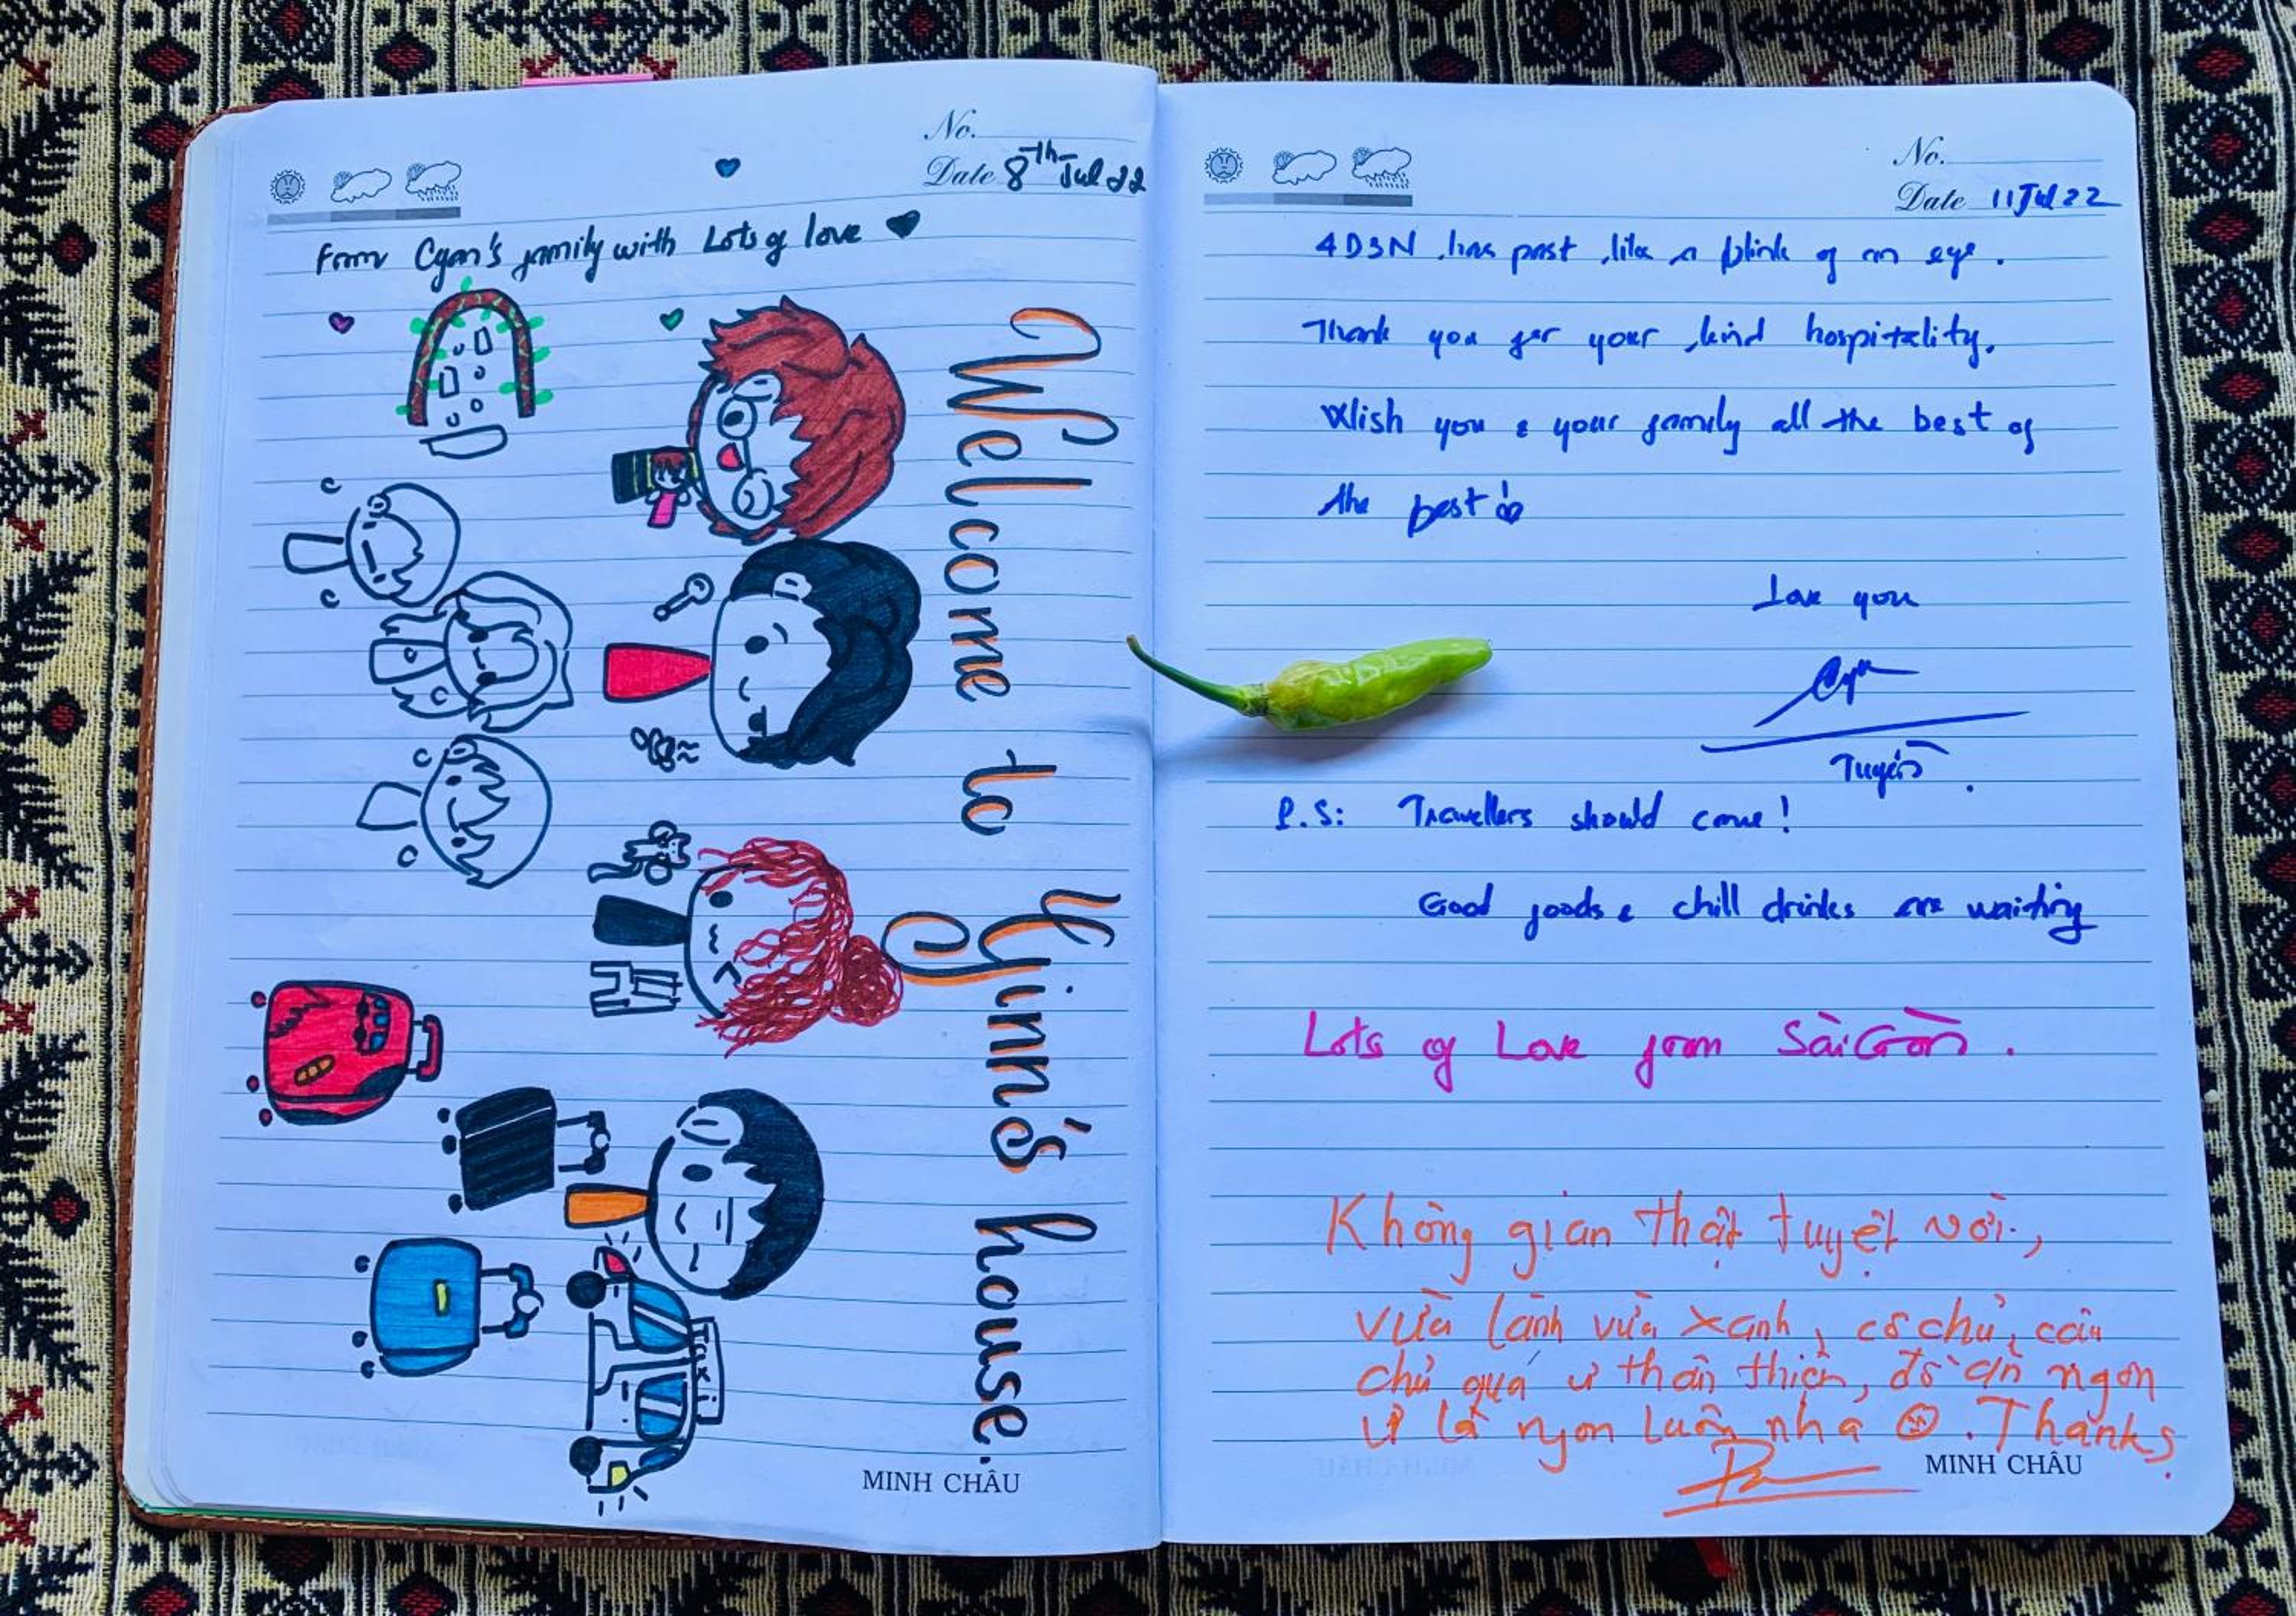 No.
Date 8th Jul 22
From Cyan's family with Lots of love
Welcome to Yinn's house.
Taxi
MINH CHÂU
No.
Date 11 Jul 22
4D3N has past like a blink of an eye.
Thank you for your kind hospitality.
Wish you & your family all the best of
the best
Love you
Cyan
Tuyền
P.S: Travellers should come!
Good foods & chill drinks are waiting
Lots of Love from SàiGòn.
Không gian thật tuyệt vời,
vừa lành vừa xanh, cô chủ, cậu
chủ quá ư thân thiện, đồ ăn ngon
ư là ngon luôn nhá . Thanks.
MINH CHÂU